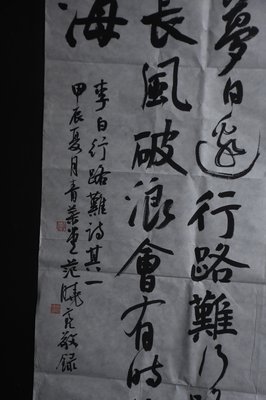 夢日邊行路難行路
長風破浪會有時
海
李白行路難詩其一
甲辰夏月青葉堂范曉亮敬錄